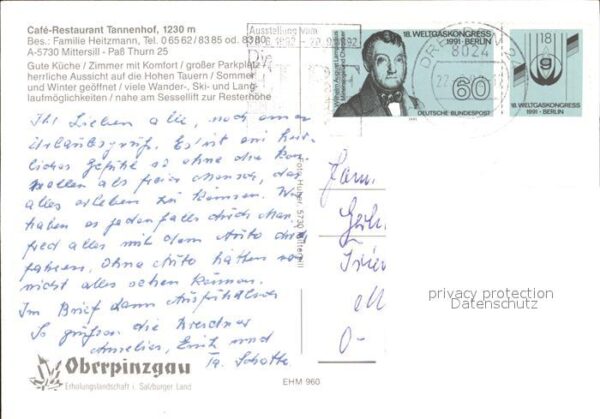 Café-Restaurant Tannenhof, 1230 m
Bes.: Familie Heitzmann, Tel. 0 65 62 / 83 85 od. 83 80
A-5730 Mittersill - Paß Thurn 25
Gute Küche / Zimmer mit Komfort / großer Parkplatz /
herrliche Aussicht auf die Hohen Tauern / Sommer
und Winter geöffnet / viele Wander-, Ski- und Lang-
laufmöglichkeiten / nahe am Sessellift zur Resterhöhe
Ausstellung vom
1892 - 20. 1992
Die
18. WELTGASKONGRESS
1991 · BERLIN
Wilhelm August Lampadius
Mineraloge und Chemiker
60
DEUTSCHE BUNDESPOST
1991
DRESDEN
8024
18
9
18. WELTGASKONGRESS
1991 · BERLIN
Ihr Lieben alle, noch einen
Urlaubsgruß. Es ist ein herr-
liches Gefühl so ohne die Kon-
trollen als freier Mensch, das
alles erleben zu können. Wir
haben es jedenfalls durch Man
fred alles mit dem Auto
fahren, Ohne Auto hätten wir
nicht alles sehen können.
Im Brief dann Ausführlicher
So grüßen die Dresdner
Annelies, Erich und
Schotte
Fam.
Trier
O-
Foto Huber, 5730 Mittersill
privacy protection
Datenschutz
Oberpinzgau
Erholungslandschaft i. Salzburger Land
EHM 960